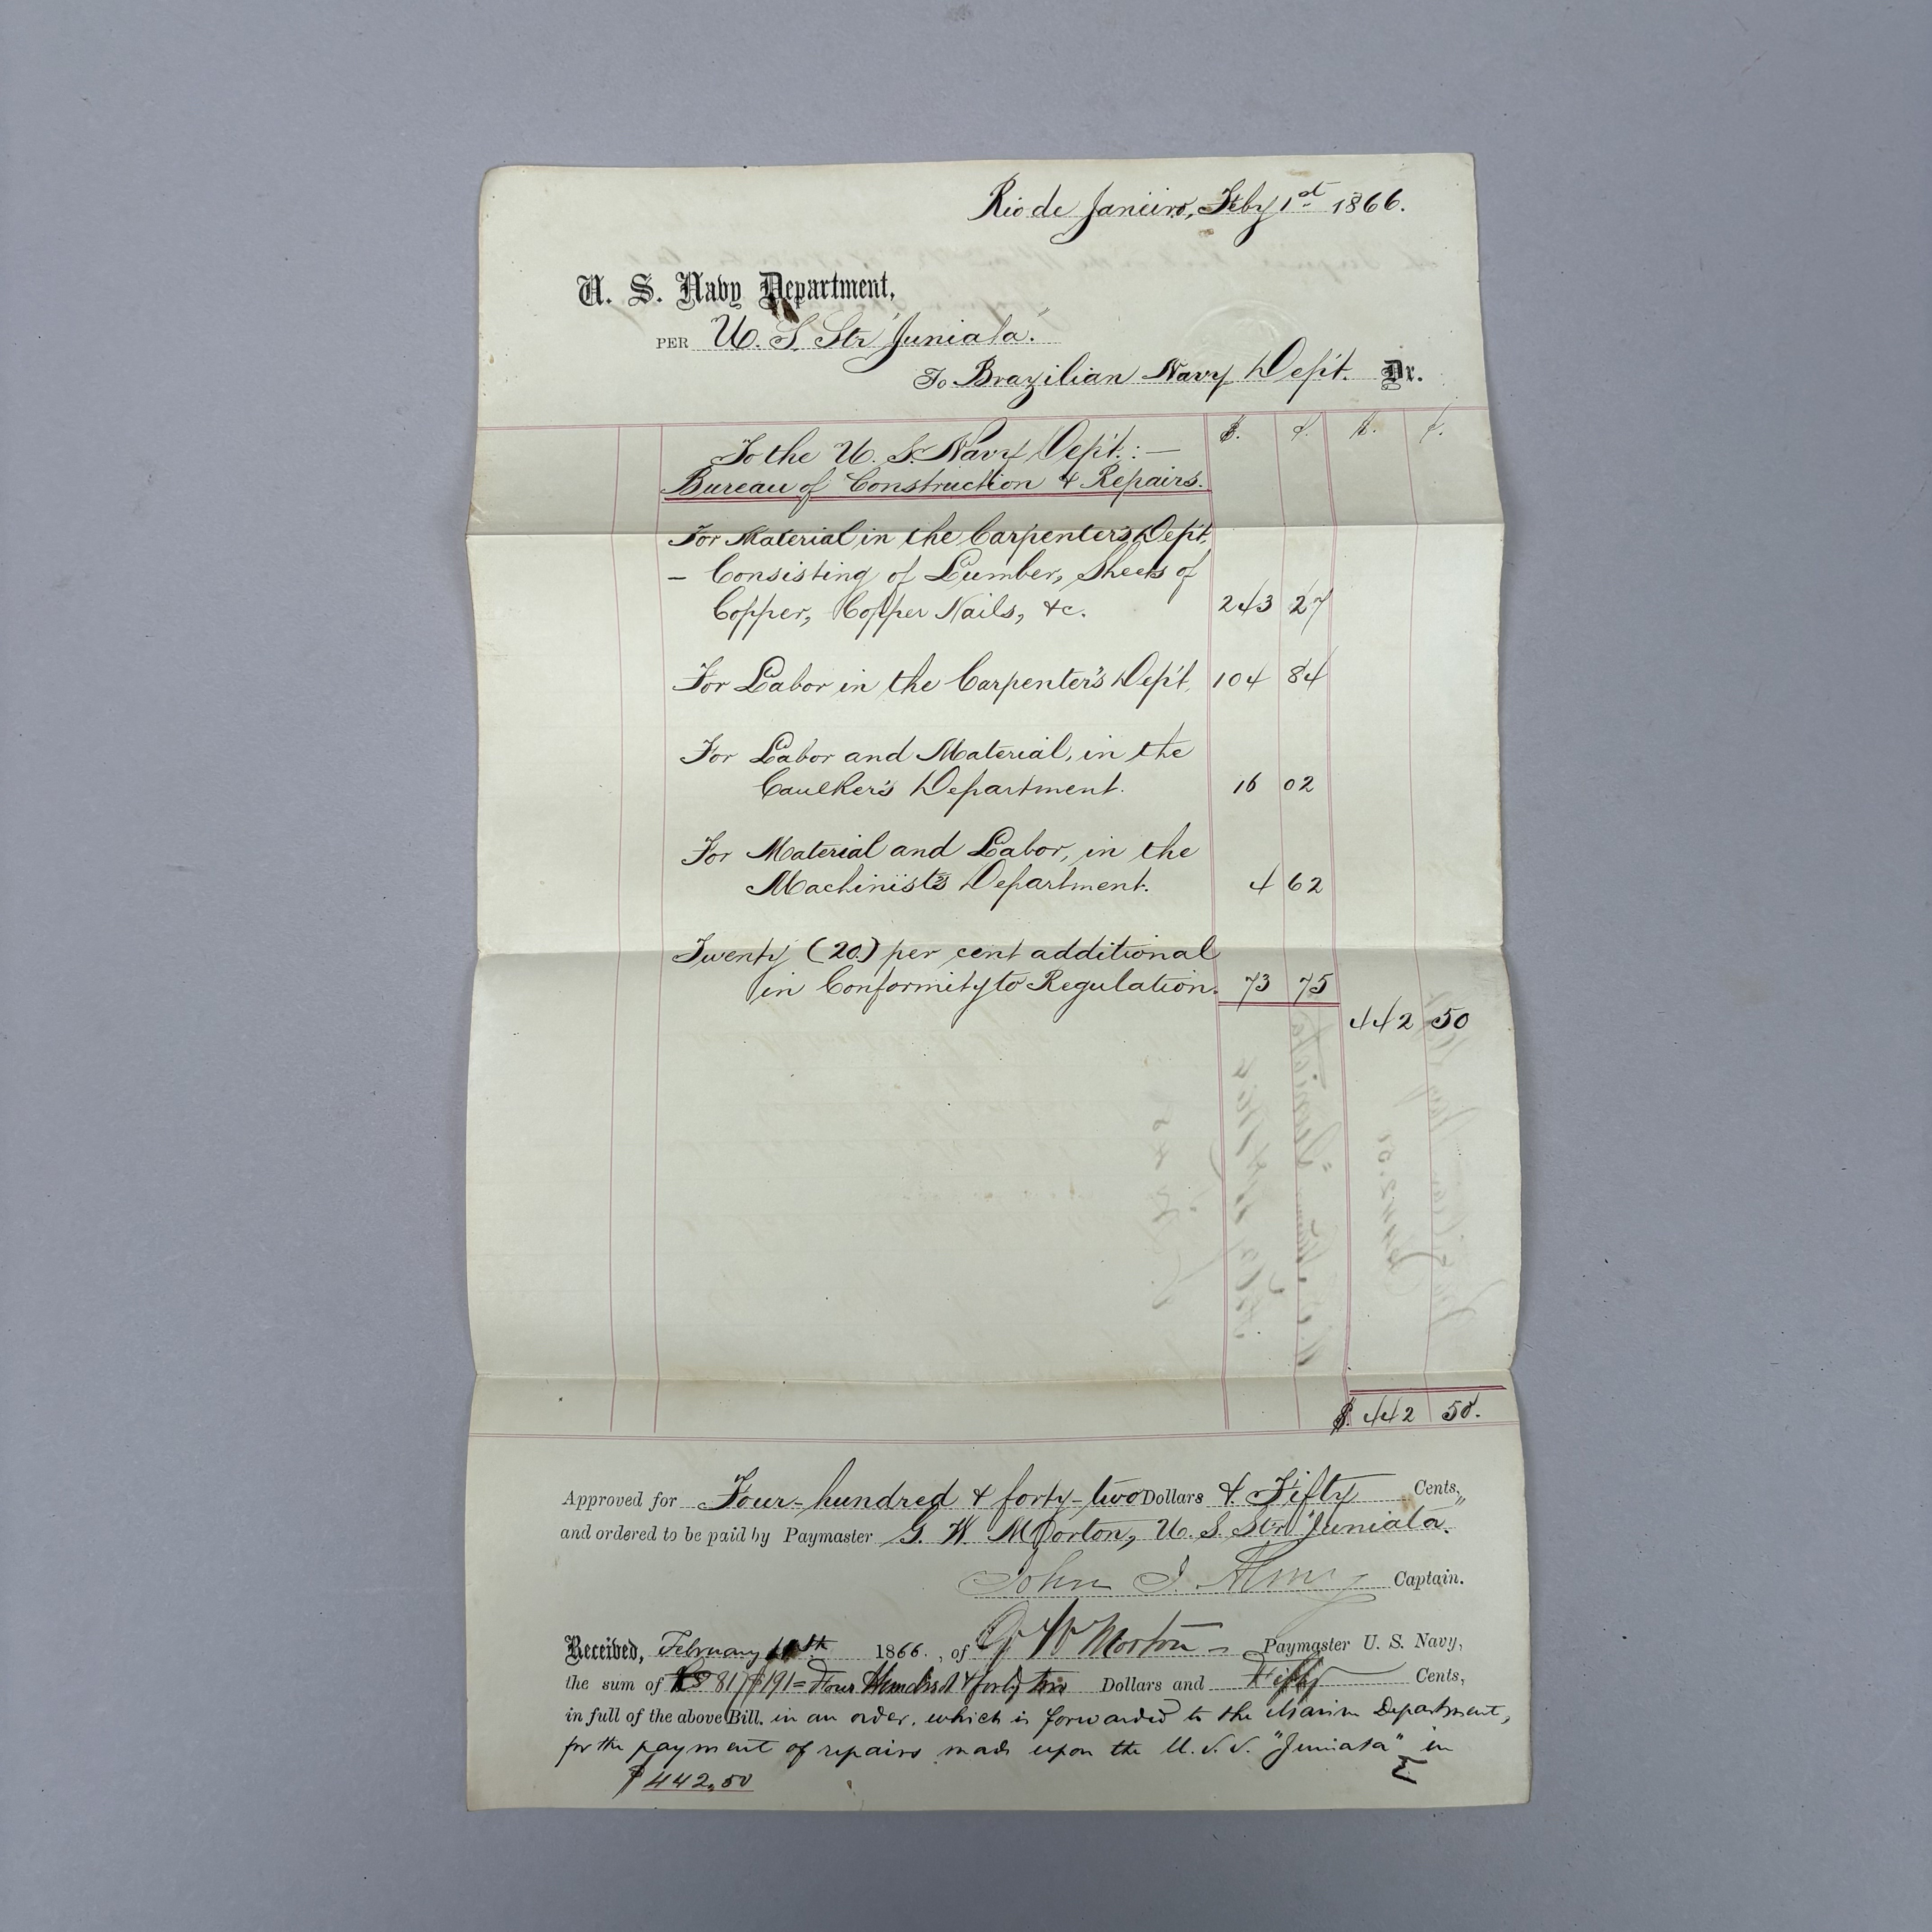 Rio de Janeiro, Feby 1st 1866.
U. S. Navy Department,
PER U. S. Str "Juniata."
To Brazilian Navy Dep't. Dr.
$. ¢. $. ¢.
To the U. S. Navy Dep't.: —
Bureau of Construction & Repairs.
For Material in the Carpenter's Dep't,
– Consisting of Lumber, Sheets of
Copper, Copper Nails, &c. 243 27
For Labor in the Carpenter's Dep't, 104 84
For Labor and Material, in the
Caulker's Department. 16 02
For Material and Labor, in the
Machinist's Department. 4 62
Twenty (20.) per cent additional
in Conformity to Regulation. 73 75
442 50
$. 442 50.
Approved for Four-hundred & forty-two Dollars & Fifty Cents,
and ordered to be paid by Paymaster G. W. Morton, U. S. Str "Juniata."
John J. Almy Captain.
Received, February 1866., of G W Morton Paymaster U. S. Navy,
the sum of Four Hundred & forty two Dollars and Fifty Cents,
in full of the above Bill. in an order, which is forwarded to the Marine Department,
for the payment of repairs made upon the U. S. S. "Juniata" in
$442,50